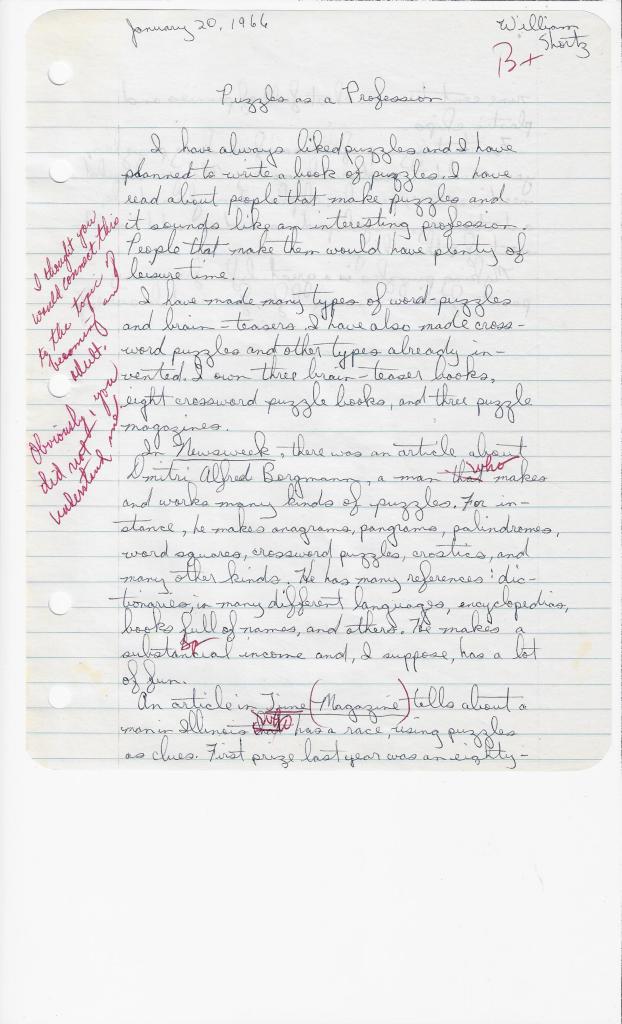 January 20, 1966
William
Shortz
B+
Puzzles as a Profession
I have always liked puzzles and I have
planned to write a book of puzzles. I have
read about people that make puzzles and
it sounds like an interesting profession.
People that make them would have plenty of
leisure time.
I have made many types of word-puzzles
and brain-teasers. I have also made cross-
word puzzles and other types already in-
vented. I own three brain-teaser books,
eight crossword puzzle books, and three puzzle
magazines.
In Newsweek, there was an article about
Dmitri Alfred Borgmann, a man that who makes
and works many kinds of puzzles. For in-
stance, he makes anagrams, pangrams, palindromes,
word squares, crossword puzzles, crostics, and
many other kinds. He has many references: dic-
tionaries in many different languages, encyclopedias,
books full of names, and others. He makes a
sp
substancial income and, I suppose, has a lot
of fun.
An article in Time (Magazine) tells about a
man in Illinois that who has a race, using puzzles
as clues. First prize last year was an eighty-
I thought you
would connect this
to the topic of
becoming an
adult.
Obviously, you
did not
understand me.